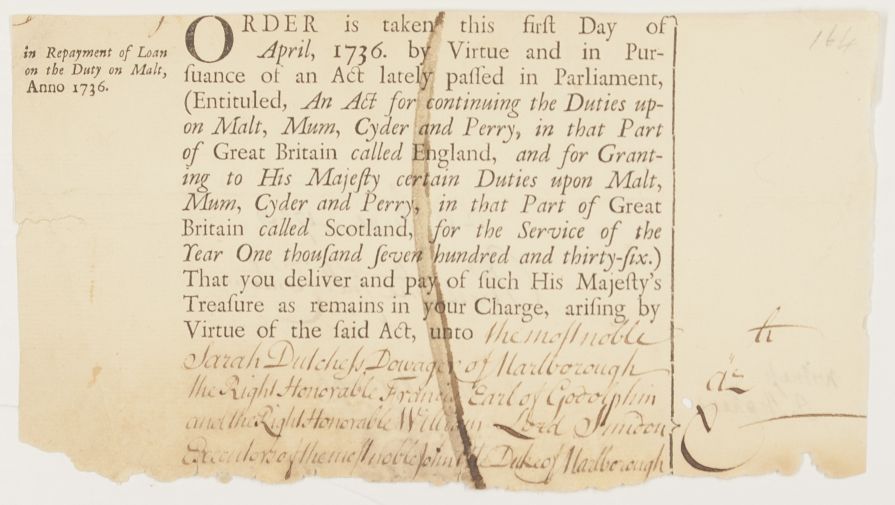 in Repayment of Loan
on the Duty on Malt,
Anno 1736.
164
ORDER is taken this firſt Day of
April, 1736. by Virtue and in Pur-
ſuance of an Act lately paſſed in Parliament,
(Entituled, An Act for continuing the Duties up-
on Malt, Mum, Cyder and Perry, in that Part
of Great Britain called England, and for Grant-
ing to His Majeſty certain Duties upon Malt,
Mum, Cyder and Perry, in that Part of Great
Britain called Scotland, for the Service of the
Year One thouſand ſeven hundred and thirty-ſix.)
That you deliver and pay of ſuch His Majeſty's
Treaſure as remains in your Charge, ariſing by
Virtue of the ſaid Act, unto the moſt noble
Sarah Dutcheſs Dowager of Marlborough
the Right Honorable Francis Earl of Godolphin
and the Right Honorable William Lord Sundon
Executors of the moſt noble John late Duke of Marlborough